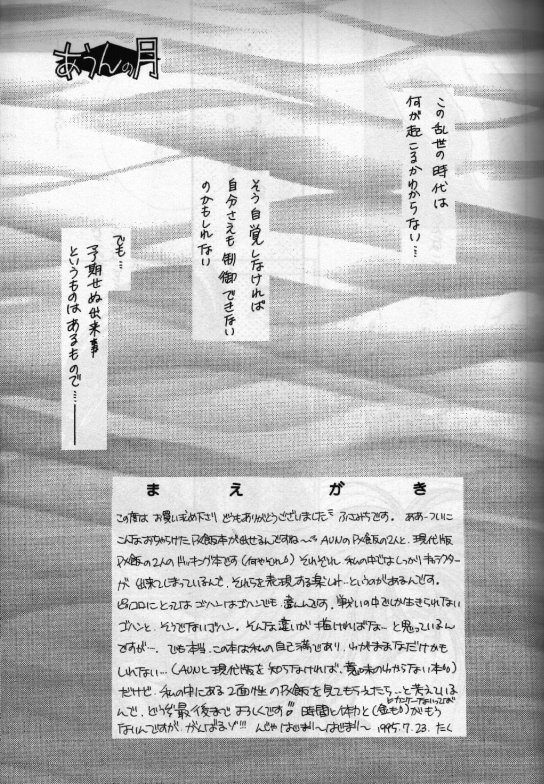 あうんの月
この乱世の時代は
何が起こるかわからない…
そう自覚しなければ
自分さえも制御できない
のかもしれない
でも…
予期せぬ出来事
というものはあるもので…――
まえがき
この度は お買い求め下さり どうもありがとうございました ふさみちです。 ああーついに
こんなおちゃらけたP×飯本が出せるんですね〜 AUNのP×飯の2人と、現代版
P×飯の2人のドッキング本です(何やそれ) それぞれ 私の中ではしっかりキャラクター
が 出来てしまっているんで、それらを表現する楽しみ…というのがあるんです。
ピッコロにとっては ゴハンはゴハンでも 違うんです。戦いの中でしか生きられない
ゴハンと、そうでないゴハン。そんな違いが 描ければな…と思っているん
ですが…。でも本当、この本は私の自己満であり、わがままなだけかも
しれない…(AUNと現代版を知らなければ、意味のわからない本)
だけど 私の中にある2面性のP×飯を見てもらえたら…と考えている
んで、どうぞ最後まで よろしくです!! 時間と体力と(金も)がもう
ないんですが がんばるゾ!!! んじゃ はじまり〜はじまり〜 1995.7.23. たく